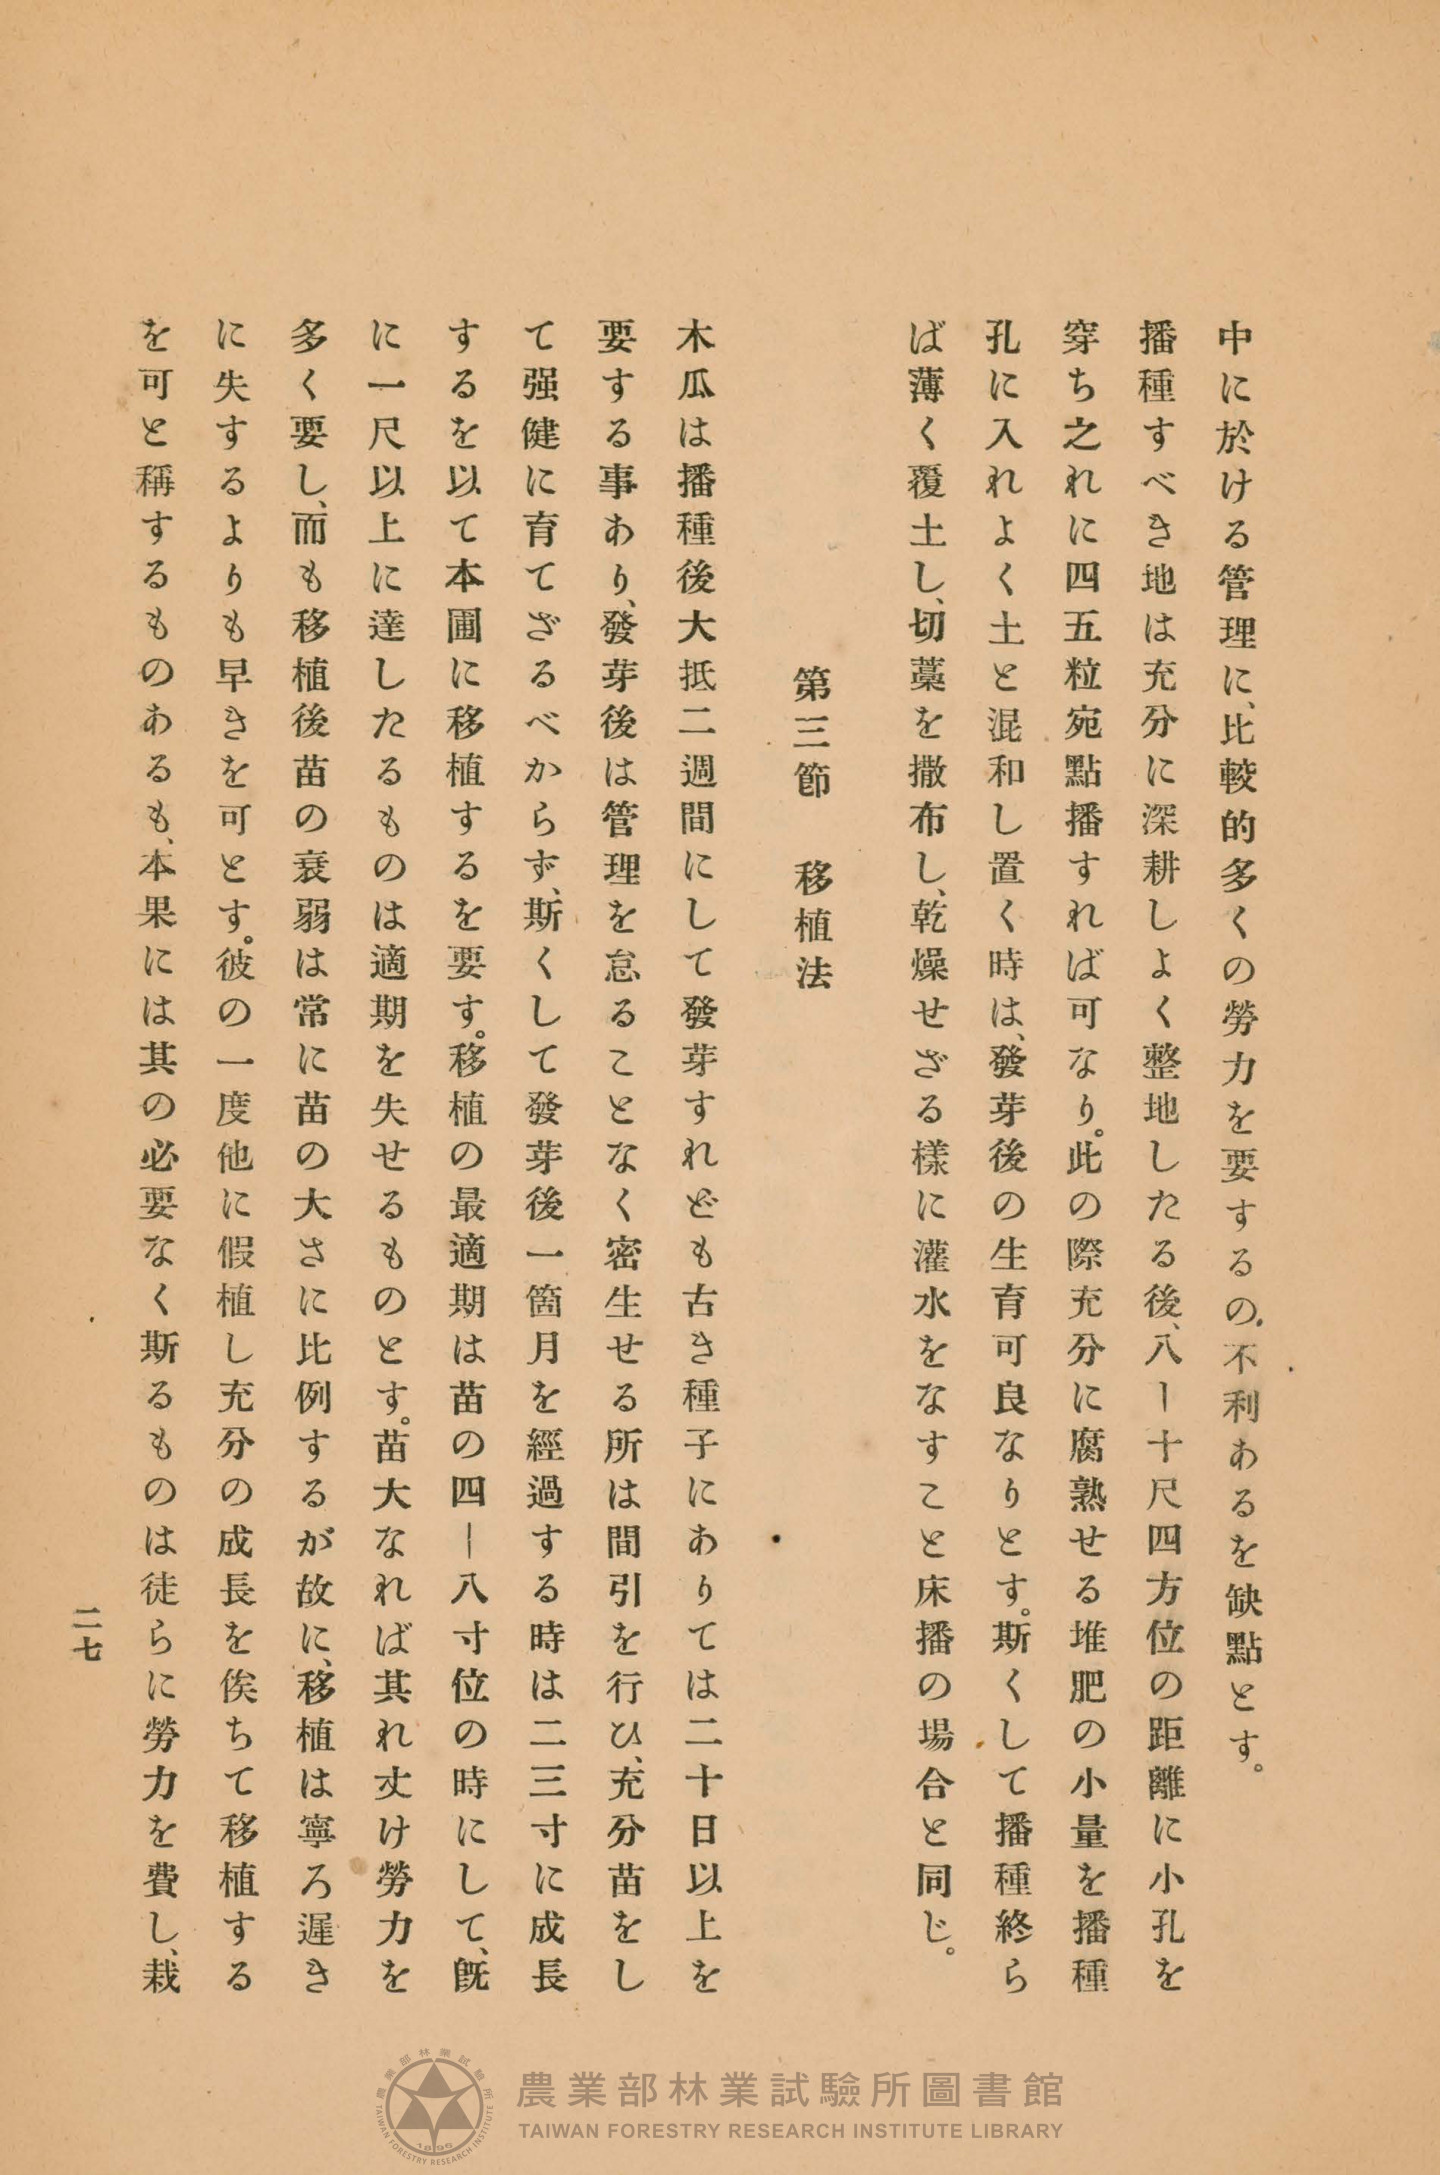 中に於ける管理に、比較的多くの勞力を要するの不利あるを缺點とす。
播種すべき地は充分に深耕しよく整地したる後、八ー十尺四方位の距離に小孔を
穿ち之れに四五粒宛點播すれば可なり。此の際充分に腐熟せる堆肥の小量を播種
孔に入れよく土と混和し置く時は、發芽後の生育可良なりとす。斯くして播種終ら
ば薄く覆土し、切藁を撒布し、乾燥せざる樣に灌水をなすこと床播の場合と同じ。
第三節　移植法
木瓜は播種後大抵二週間にして發芽すれども古き種子にありては二十日以上を
要する事あり、發芽後は管理を怠ることなく密生せる所は間引を行ひ、充分苗をし
て强健に育てざるべからず、斯くして發芽後一箇月を經過する時は二三寸に成長
するを以て本圃に移植するを要す。移植の最適期は苗の四ー八寸位の時にして、旣
に一尺以上に達したるものは適期を失せるものとす。苗大なれば其れ丈け勞力を
多く要し、而も移植後苗の衰弱は常に苗の大さに比例するが故に、移植は寧ろ遲き
に失するよりも早きを可とす。彼の一度他に假植し充分の成長を俟ちて移植する
を可と稱するものあるも、本果には其の必要なく斯るものは徒らに勞力を費し、栽
二七
農業部林業試驗所圖書館
TAIWAN FORESTRY RESEARCH INSTITUTE LIBRARY
農業部林業試驗所
TAIWAN FORESTRY RESEARCH INSTITUTE
1896